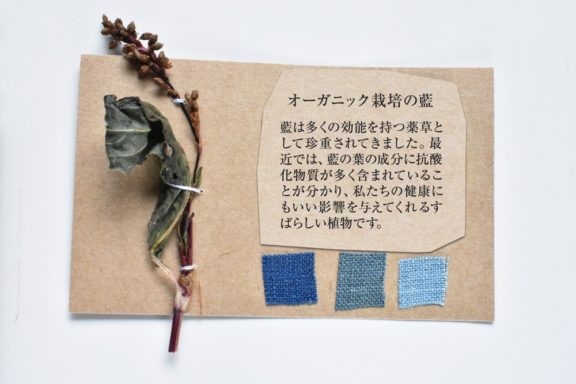 オーガニック栽培の藍
藍は多くの効能を持つ薬草と
して珍重されてきました。最
近では、藍の葉の成分に抗酸
化物質が多く含まれているこ
とが分かり、私たちの健康に
もいい影響を与えてくれるす
ばらしい植物です。